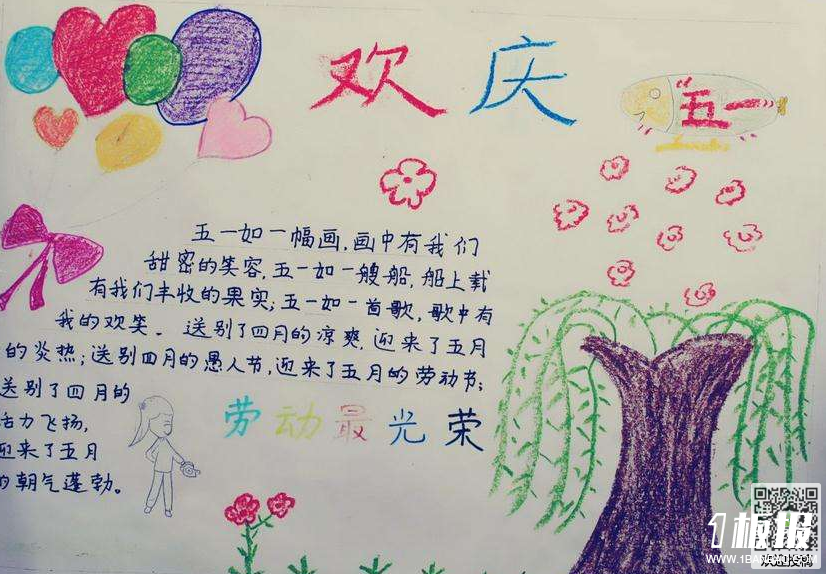 欢庆
"五一"
五一如一幅画,画中有我们
甜密的笑容,五一如一艘船,船上载
有我们丰收的果实;五一如一首歌,歌中有
我的欢笑。送别了四月的凉爽,迎来了五月
的炎热;送别四月的愚人节,迎来了五月的劳动节;
送别了四月的
活力飞扬,
迎来了五月
的朝气蓬勃。
劳动最光荣
1板报
WWW.1BANBAO.COM
欢迎投稿